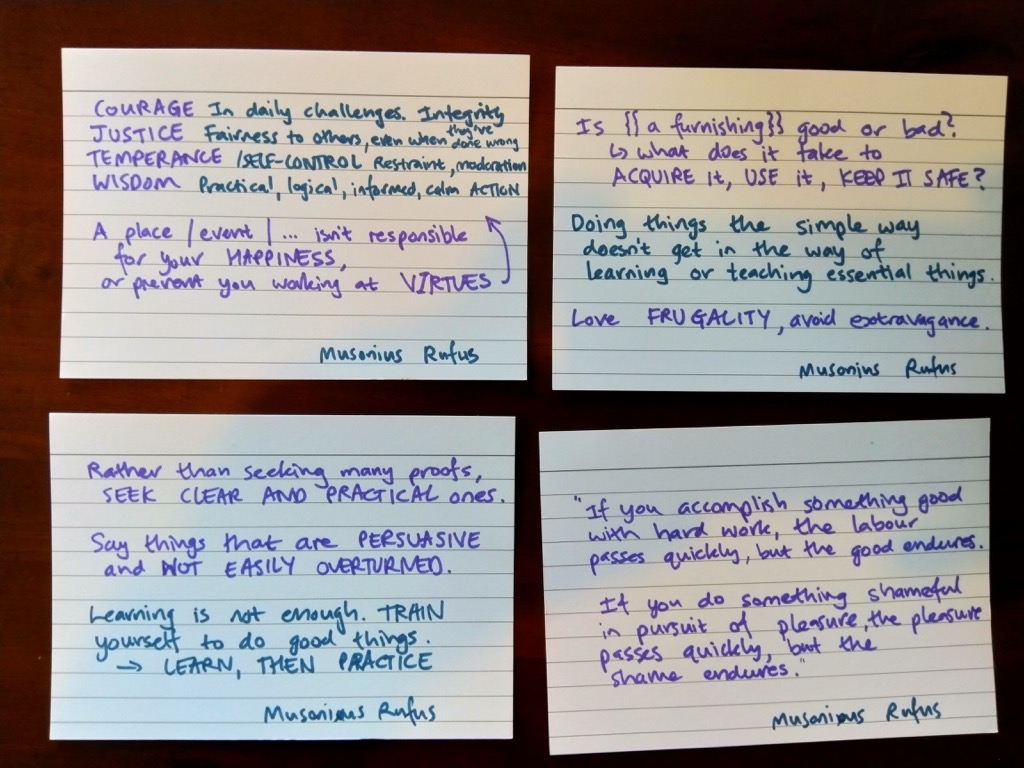 COURAGE In daily challenges. Integrity
JUSTICE Fairness to others, even when they've done wrong
TEMPERANCE /SELF-CONTROL Restraint, moderation
WISDOM Practical, logical, informed, calm ACTION
A place / event / ... isn't responsible
for your HAPPINESS,
or prevent you working at VIRTUES
Musonius Rufus
Is {{a furnishing}} good or bad?
↳ what does it take to
ACQUIRE it, USE it, KEEP IT SAFE?
Doing things the simple way
doesn't get in the way of
learning or teaching essential things.
Love FRUGALITY, avoid extravagance.
Musonius Rufus
Rather than seeking many proofs,
SEEK CLEAR AND PRACTICAL ones.
Say things that are PERSUASIVE
and NOT EASILY OVERTURNED.
Learning is not enough. TRAIN
yourself to do good things.
→ LEARN, THEN PRACTICE
Musonius Rufus
"If you accomplish something good
with hard work, the labour
passes quickly, but the good endures.
If you do something shameful
in pursuit of pleasure, the pleasure
passes quickly, but the
shame endures."
Musonius Rufus